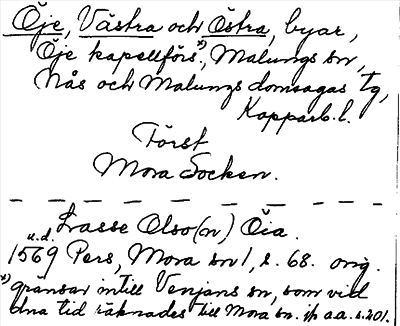 Öje, Västra och Östra, byar,
Öje kapellförs.*), Malungs sn,
Nås och Malungs domsagas tg,
Kopparb. l.
Först
Mora Socken.
Lasse Olso(n) Öia.
u.d.
1569 Pers, Mora sn 1, s. 68. orig.
*) gränsar intill Venjans sn, som vid
dna tid räknades till Mora sn. jfr a.a. s. 201.